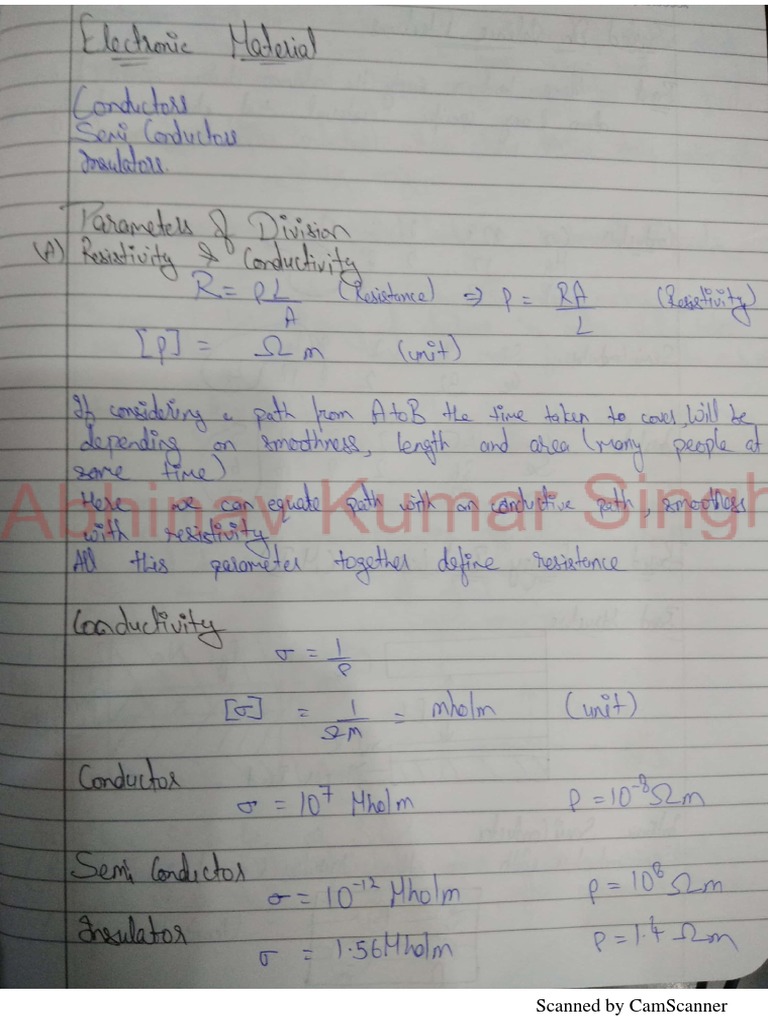 Electronic Material
Conductors
Semi Conductors
Insulators.
Parameters of Division
(A) Resistivity & Conductivity
R = ρL/A (Resistance) ⇒ ρ = RA/L (Resistivity)
[ρ] = Ω m (unit)
If considering a path from A to B the time taken to cover, will be
depending on smoothness, length and area (many people at
same time)
Here we can equate path with an conductive path, smoothness
with resistivity
All this parameter together define resistance
Abhinav Kumar Singh
Conductivity
σ = 1/ρ
[σ] = 1/Ωm = mho/m (unit)
Conductor
σ = 10⁷ Mho/m ρ = 10⁻⁸ Ωm
Semi Conductor
σ = 10⁻¹² Mho/m ρ = 10⁸ Ωm
Insulator
σ = 1.56 Mho/m ρ = 1.4 Ωm
Scanned by CamScanner